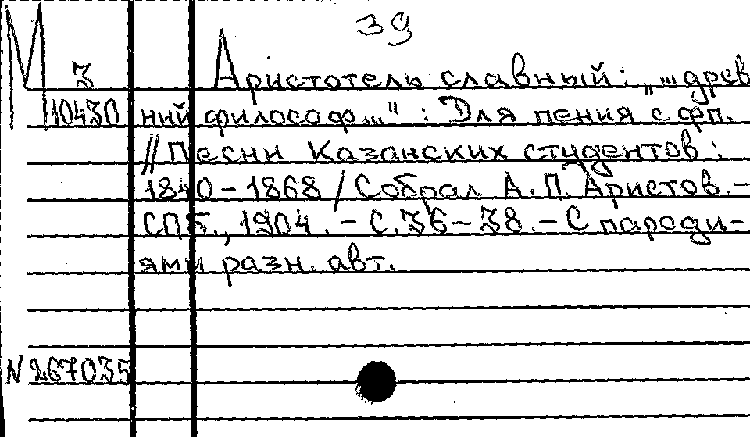 39
М З
10430
Аристотель славный: „... древ
ний философ..." : Для пения с фп.
// Песни Казанских студентов:
1840-1868 / Собрал А.П. Аристов.-
СПб., 1904. - С.36-38. - С пароди-
ями разн. авт.
N 267035